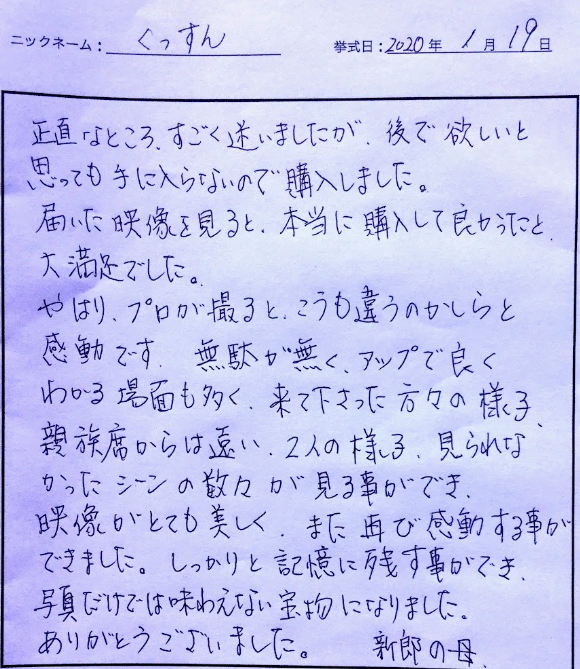 ニックネーム： くっすん 挙式日：2020年 1月 19日
正直なところ、すごく迷いましたが、後で欲しいと
思っても手に入らないので購入しました。
届いた映像を見ると、本当に購入して良かったと、
大満足でした。
やはり、プロが撮ると、こうも違うのかしらと
感動です。無駄が無く、アップで良く
わかる場面も多く、来て下さった方々の様子、
親族席からは遠い、2人の様子、見られな
かったシーンの数々が見る事ができ、
映像がとても美しく、また再び感動する事が
できました。しっかりと記憶に残す事ができ、
写真だけでは味わえない宝物になりました。
ありがとうございました。 新郎の母